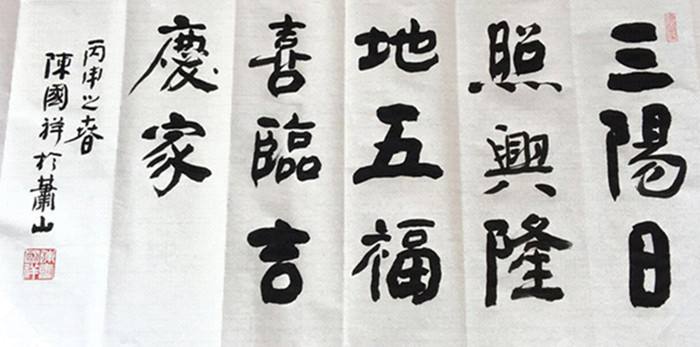 三陽日
照興隆
地五福
喜臨吉
慶家
丙申之春
陳國祥於蕭山